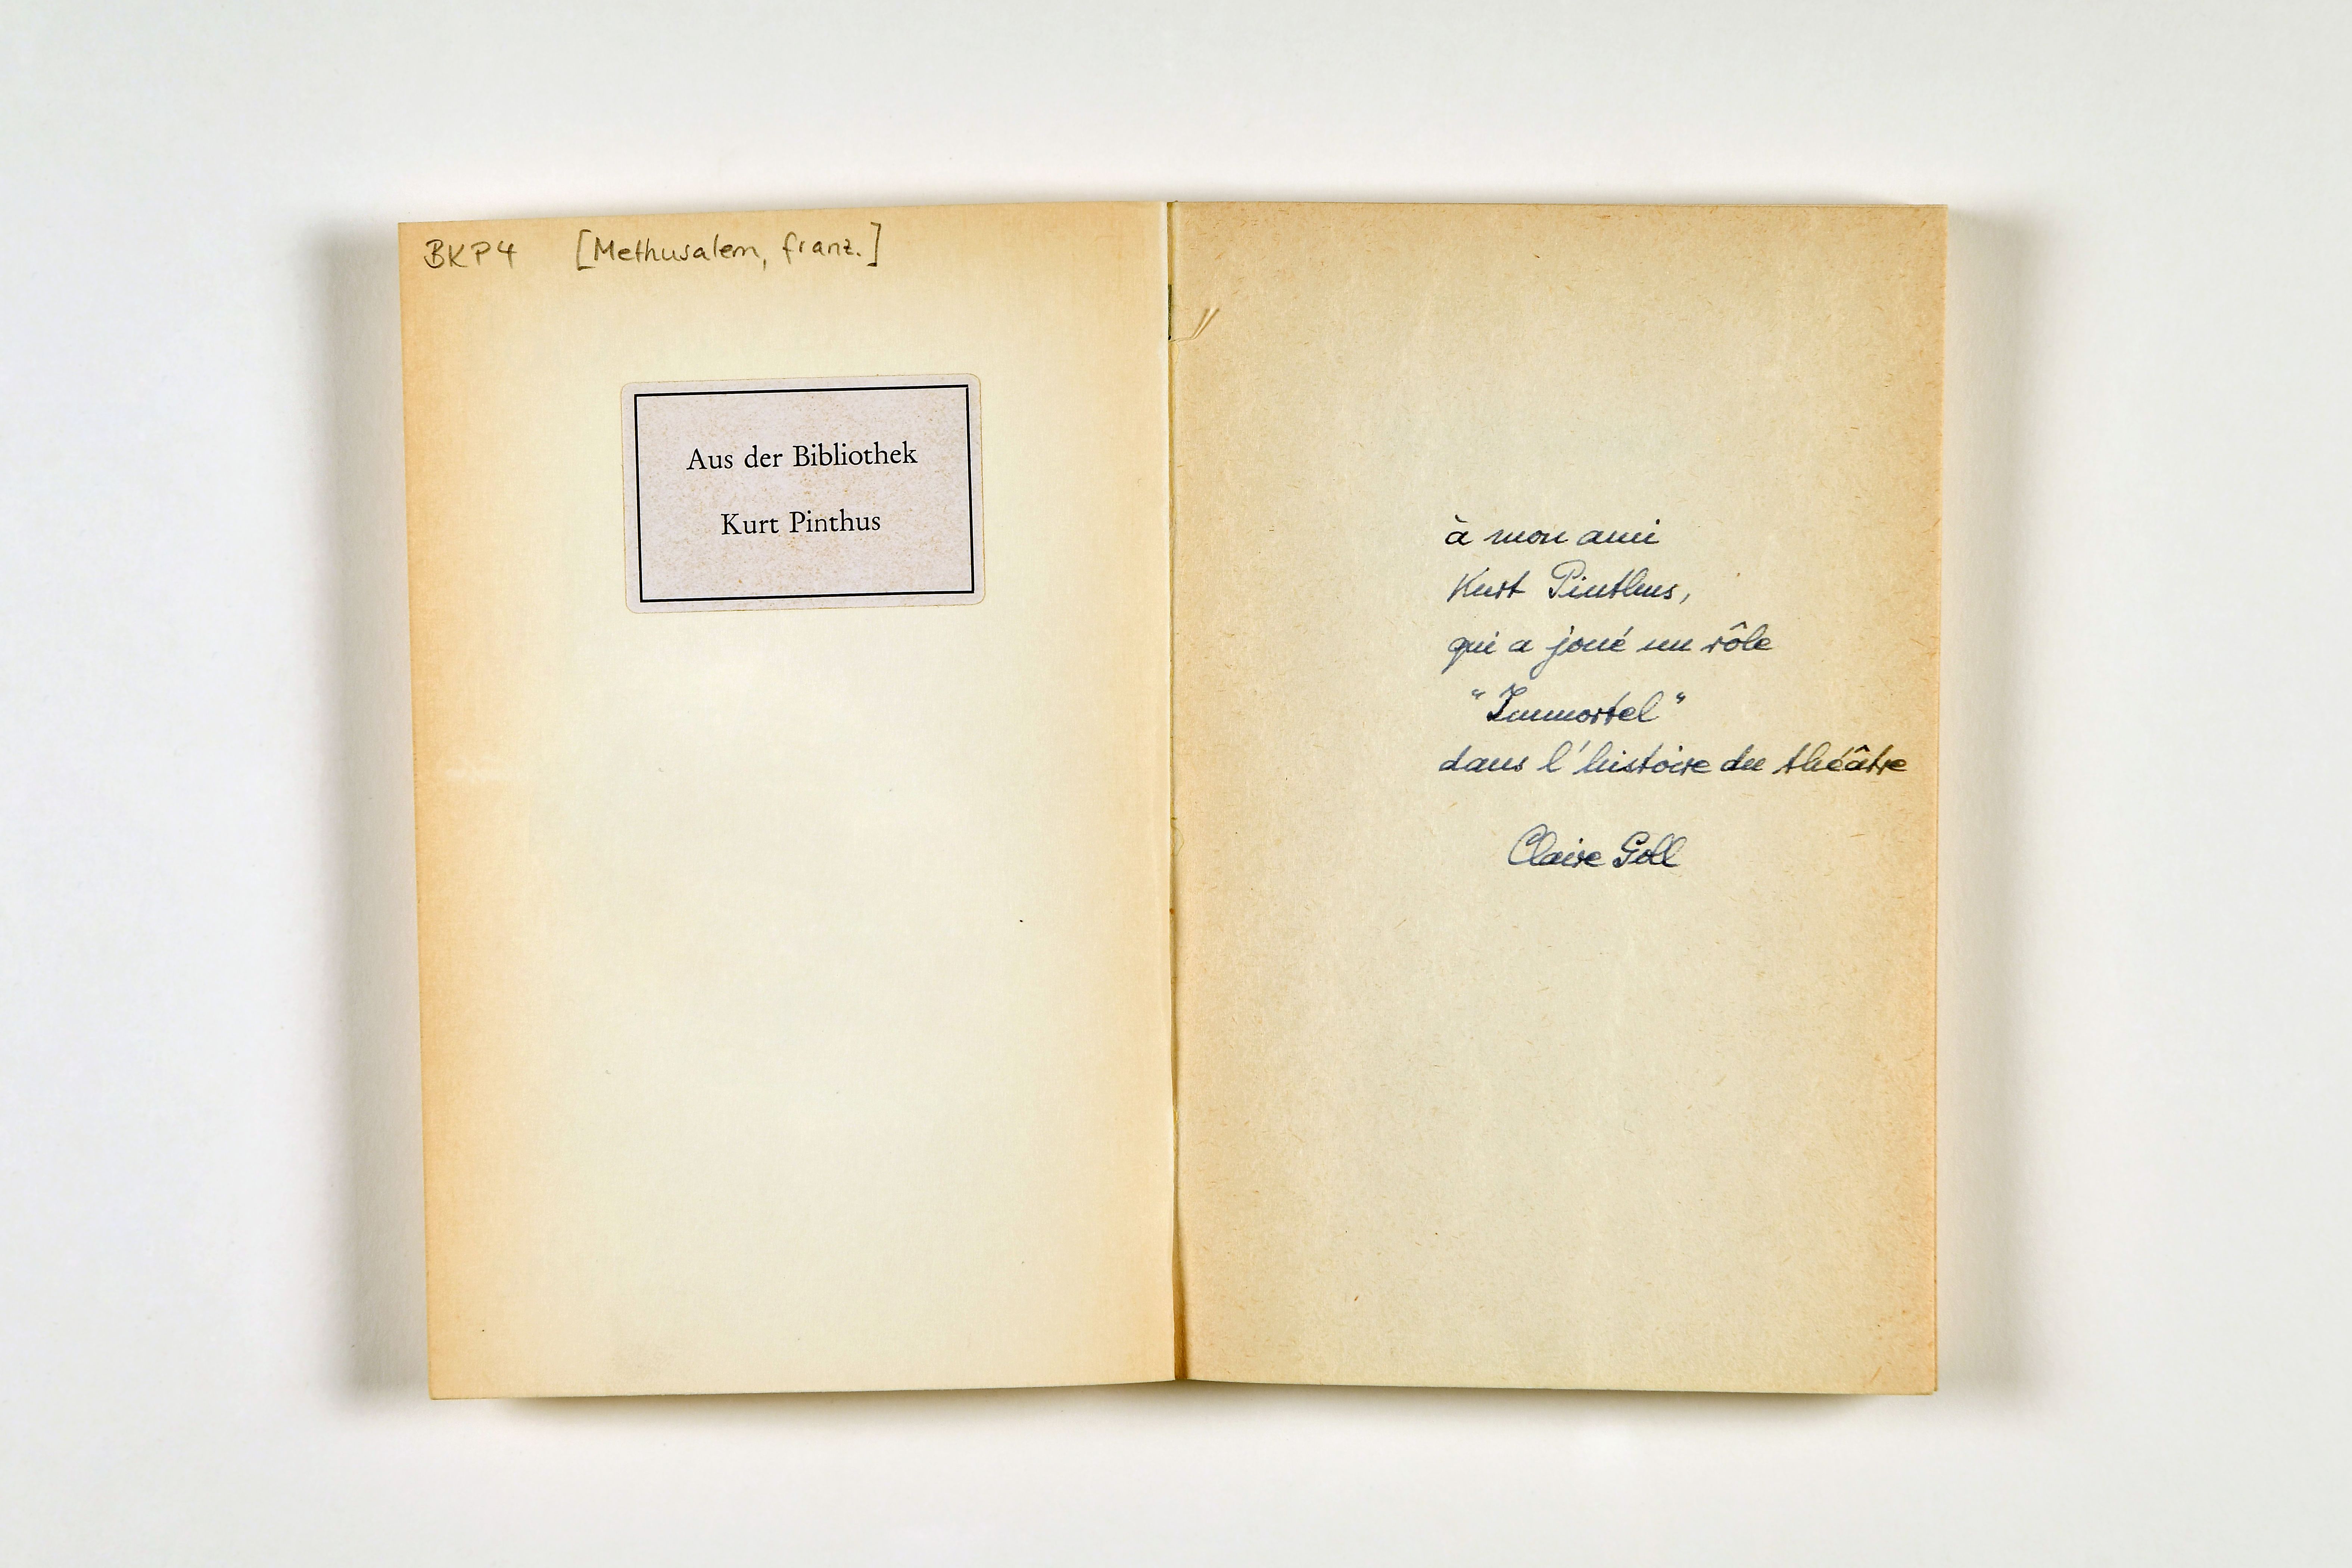 BKP4 [Methusalem, franz.]
Aus der Bibliothek
Kurt Pinthus
à mon ami
Kurt Pinthus,
qui a joué un rôle
"Immortel"
dans l'histoire du théâtre
Claire Goll